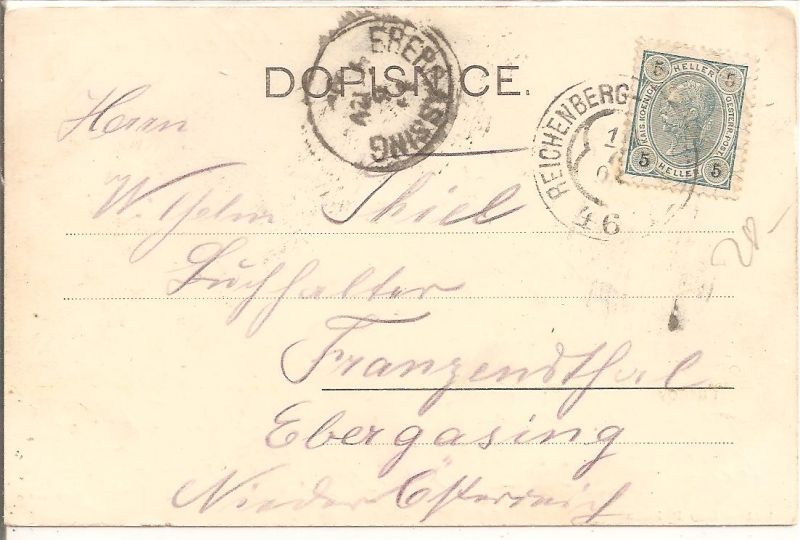 DOPISNICE.
EBERGASSING
REICHENBERG
46
5 HELLER 5
KAIS. KÖNIGL. OESTERR. POST
5 HELLER 5
Herrn
Wilhelm Thiel
Buchhalter
Franzensthal
Ebergasing
Nieder Österreich
28-